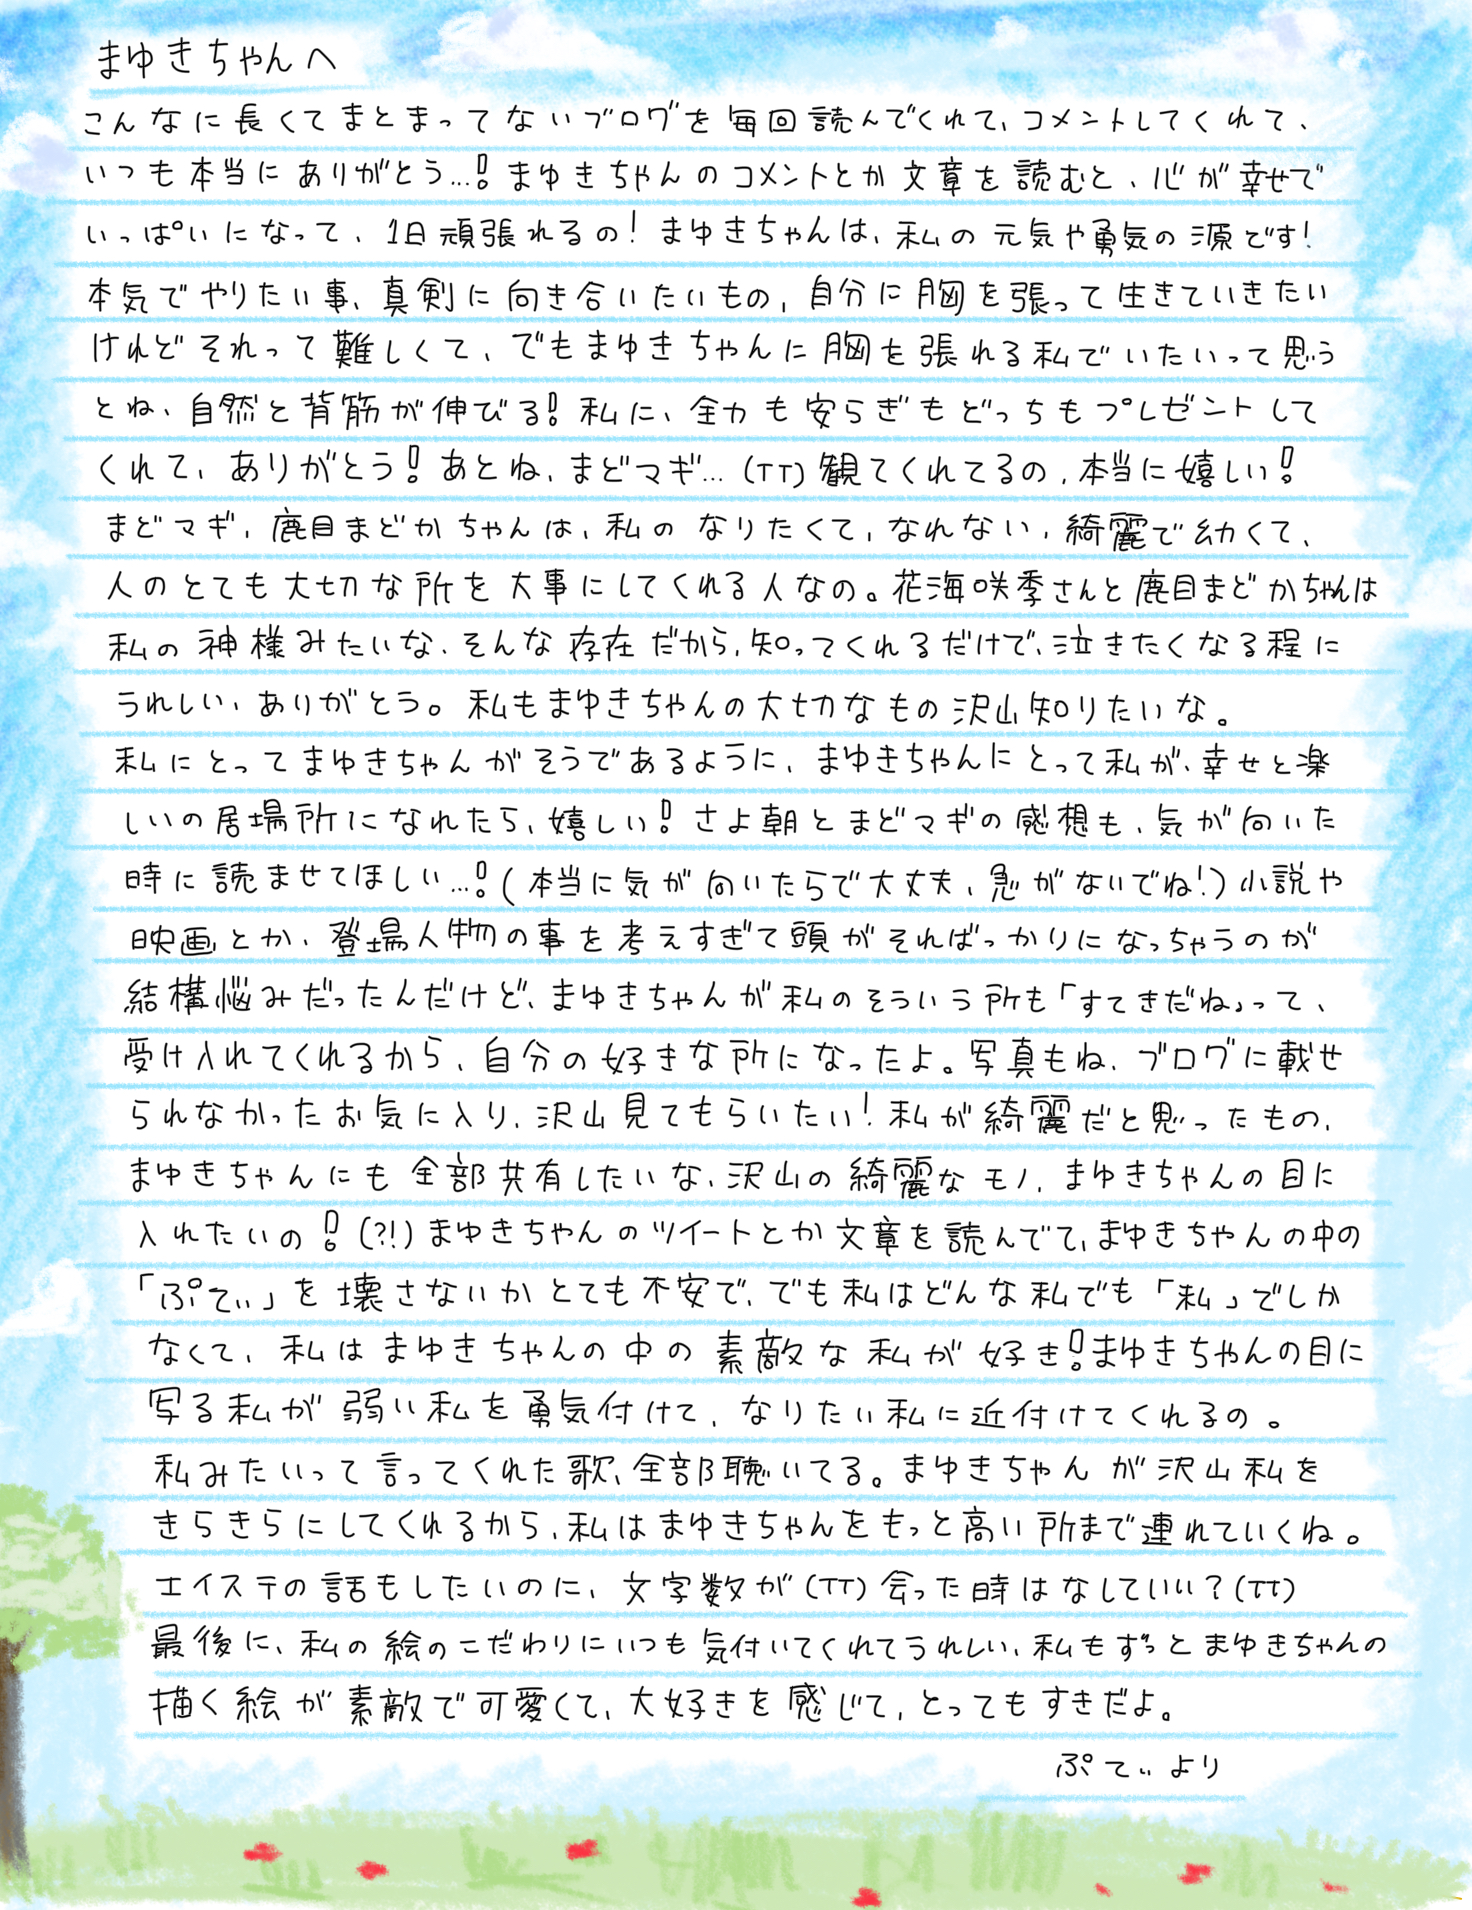 まゆきちゃんへ
こんなに長くてまとまってないブログを毎回読んでくれて、コメントしてくれて、
いつも本当にありがとう…！まゆきちゃんのコメントとか文章を読むと、心が幸せで
いっぱいになって、1日頑張れるの！まゆきちゃんは、私の元気や勇気の源です！
本気でやりたい事、真剣に向き合いたいもの、自分に胸を張って生きていきたい
けれどそれって難しくて、でもまゆきちゃんに胸を張れる私でいたいって思う
とね、自然と背筋が伸びる！私に、全力も安らぎもどっちもプレゼントして
くれて、ありがとう！あとね、まどマギ…(TT)観てくれてるの、本当に嬉しい！
まどマギ、鹿目まどかちゃんは、私のなりたくて、なれない、綺麗で幼くて、
人のとても大切な所を大事にしてくれる人なの。花海咲季さんと鹿目まどかちゃんは
私の神様みたいな、そんな存在だから、知ってくれるだけで、泣きたくなる程に
うれしい、ありがとう。私もまゆきちゃんの大切なもの沢山知りたいな。
私にとってまゆきちゃんがそうであるように、まゆきちゃんにとって私が、幸せと楽
しいの居場所になれたら、嬉しい！さよ朝とまどマギの感想も、気が向いた
時に読ませてほしい…！(本当に気が向いたらで大丈夫、急がないでね！)小説や
映画とか、登場人物の事を考えすぎて頭がそればっかりになっちゃうのが
結構悩みだったんだけど、まゆきちゃんが私のそういう所も「すてきだね」って、
受け入れてくれるから、自分の好きな所になったよ。写真もね、ブログに載せ
られなかったお気に入り、沢山見てもらいたい！私が綺麗だと思ったもの、
まゆきちゃんにも全部共有したいな、沢山の綺麗なモノ、まゆきちゃんの目に
入れたいの！(?!)まゆきちゃんのツイートとか文章を読んでて、まゆきちゃんの中の
「ぷてぃ」を壊さないかとても不安で、でも私はどんな私でも「私」でしか
なくて、私はまゆきちゃんの中の素敵な私が好き！まゆきちゃんの目に
写る私が弱い私を勇気付けて、なりたい私に近付けてくれるの。
私みたいって言ってくれた歌、全部聴いてる。まゆきちゃんが沢山私を
きらきらにしてくれるから、私はまゆきちゃんをもっと高い所まで連れていくね。
エイステの話もしたいのに、文字数が(TT)会った時はなしていい？(TT)
最後に、私の絵のこだわりにいつも気付いてくれてうれしい、私もずっとまゆきちゃんの
描く絵が素敵で可愛くて、大好きを感じて、とってもすきだよ。
ぷてぃより